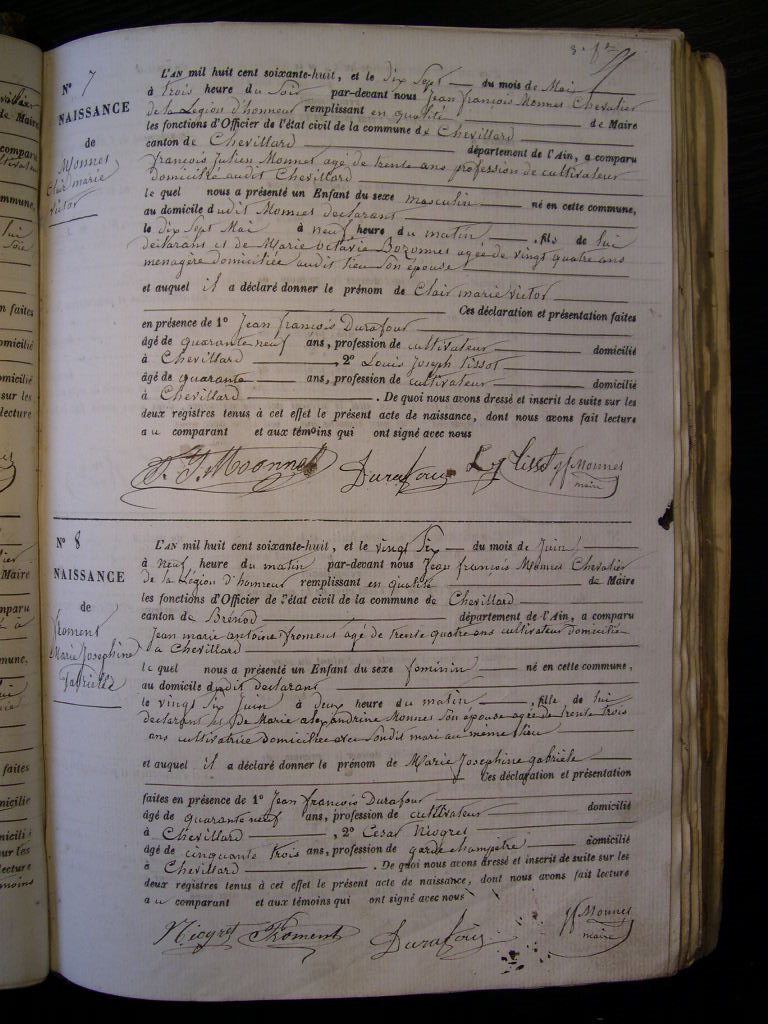 N° 7
NAISSANCE
de
Monnet
Clair marie
victor
L'AN mil huit cent soixante-huit, et le dix Sept du mois de Mai
à trois heure du Soir par-devant nous Jean françois Monnet Chevalier
de la Légion d'honneur remplissant en qualité de Maire
les fonctions d'Officier de l'état civil de la commune de Chevillard
canton de Chevillard département de l'Ain, a comparu
françois julien Monnet agé de trente ans profession de cultivateur
domicilié audit Chevillard
le quel nous a présenté un Enfant du sexe masculin né en cette commune,
au domicile dudit Monnet déclarant
le dix Sept Mai à neuf heure du matin, fils de lui
déclarant et de Marie octavie Bozonnet agée de vingt quatre ans
menagère domiciliée audit lieu Son épouse
et auquel il a déclaré donner le prénom de Clair marie victor
Ces déclaration et présentation faites
en présence de 1° Jean françois Durafour
âgé de quarante neuf ans, profession de cultivateur domicilié
à Chevillard, 2° Louis Joseph Tissot
âgé de quarante ans, profession de cultivateur domicilié
à Chevillard. De quoi nous avons dressé et inscrit de suite sur les
deux registres tenus à cet effet le présent acte de naissance, dont nous avons fait lecture
au comparant et aux témoins qui ont signé avec nous
Durafour Tissot Monnet
maire
N° 8
NAISSANCE
de
froment
Marie Josephine
Gabrielle
L'AN mil huit cent soixante-huit, et le vingt Six du mois de Juin
à neuf heure du matin par-devant nous Jean françois Monnet Chevalier
de la Légion d'honneur remplissant en qualité de Maire
les fonctions d'Officier de l'état civil de la commune de Chevillard
canton de Brénod département de l'Ain, a comparu
Jean marie antoine froment agé de trente quatre ans cultivateur domicilié
a Chevillard
le quel nous a présenté un Enfant du sexe feminin né en cette commune,
au domicile dudit declarant
le vingt Six Juin à deux heure du matin, fille de lui
declarant et de Marie alexandrine Monnet Son épouse agée de trente trois
ans cultivatrice domiciliée avec Sondit mari au meme lieu
et auquel il a déclaré donner le prénom de Marie Josephine gabriele
Ces déclaration et présentation
faites en présence de 1° Jean françois Durafour
âgé de quarante neuf ans, profession de cultivateur domicilié
à Chevillard, 2° César Niogret
âgé de cinquante trois ans, profession de garde champêtre domicilié
à Chevillard. De quoi nous avons dressé et inscrit de suite sur les
deux registres tenus à cet effet le présent acte de naissance, dont nous avons fait lecture
au comparant et aux témoins qui ont signé avec nous
Niogret Froment Durafour Monnet
maire